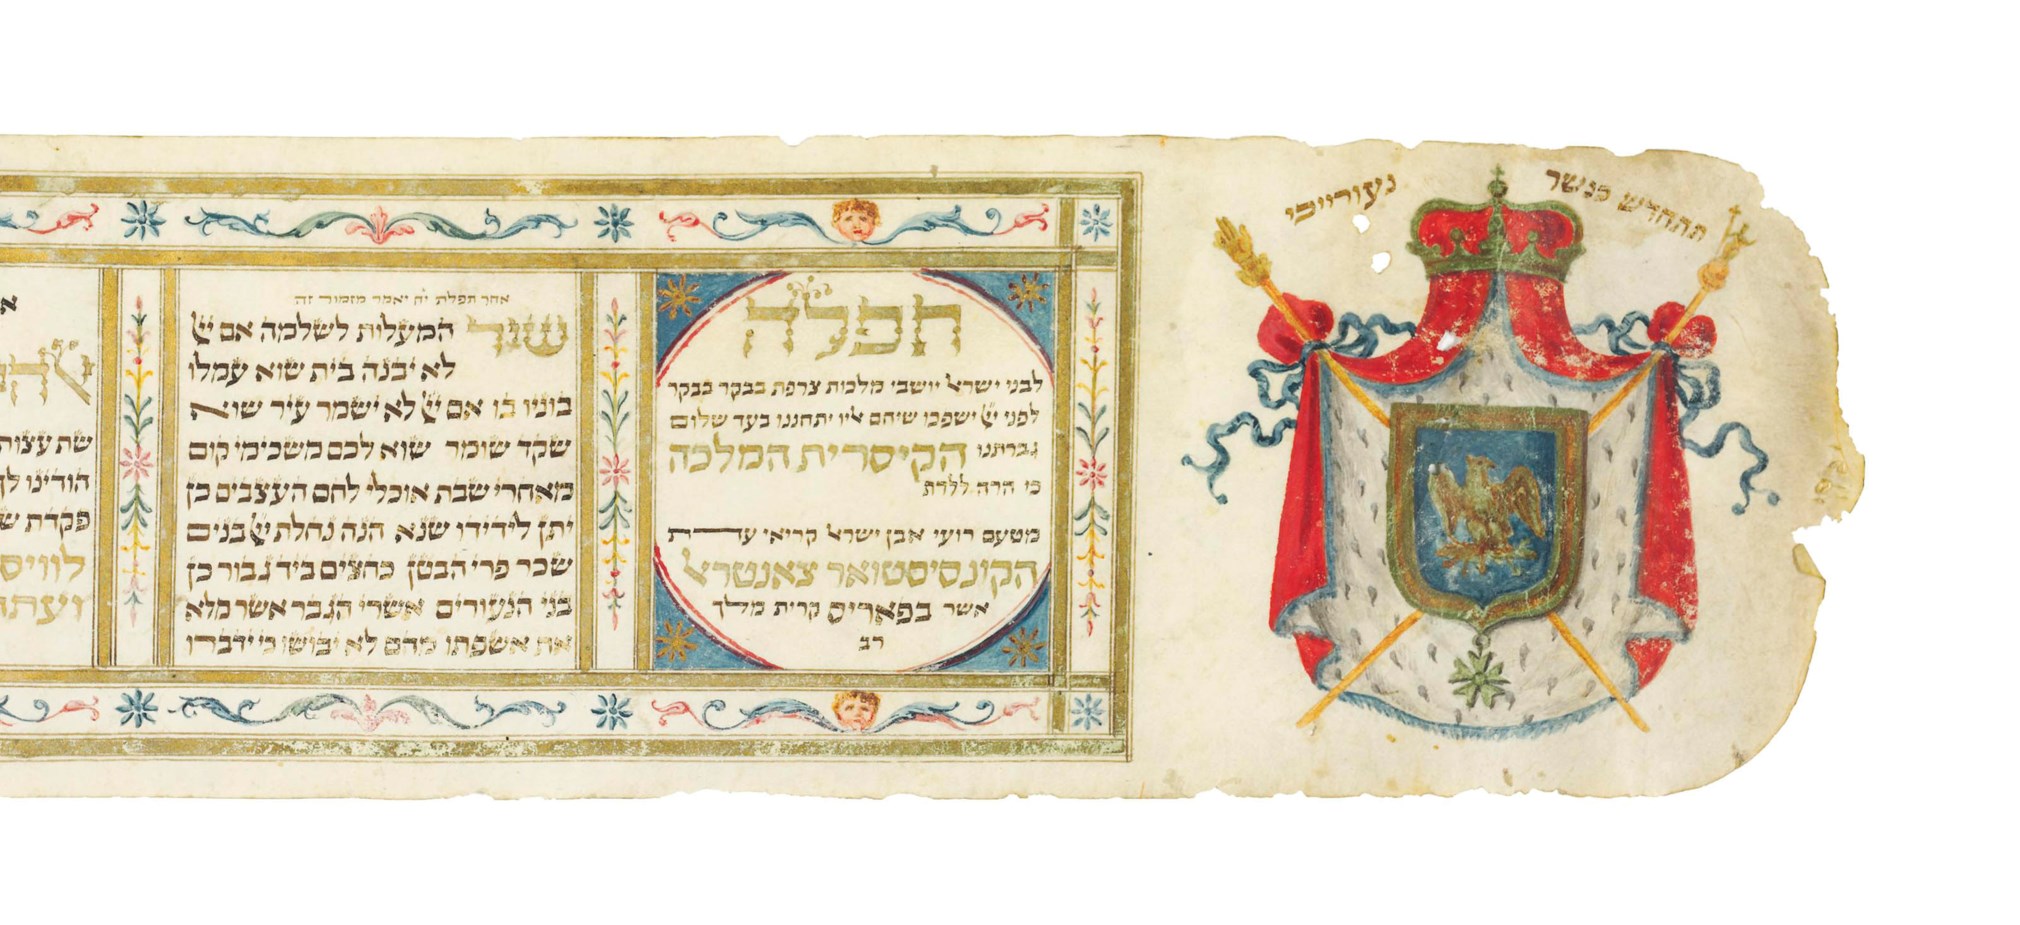 תתחדש כנשר נעורייכי
תפלה
לבני ישראל יושבי מלכות צרפת בבקר בבקר
לפני ישפכו שיחם אליו יתחננו בעד שלום
גברתנו הקיסרית המלכה
כי הרה ללדת
מטעם רועי אבן ישראל קריאי עדת
הקונסיסטואר צאנטראל
אשר בפאריס קרית מלך
רב
אחר תפלת יח יאמר מזמור זה
שיר המעלות לשלמה אם
לא יבנה בית שוא עמלו
בוניו בו אם לא ישמר עיר שוא
שקד שומר שוא לכם משכימי קום
מאחרי שבת אוכלי לחם העצבים כן
יתן לידידו שנא הנה נחלת בנים
שכר פרי הבטן כחצים ביד גבור כן
בני הנעורים אשרי הגבר אשר מלא
את אשפתו מהם לא יבושו כי ידברו
שת עצות
הודינו לך
פקדת
לוויס
ועתה